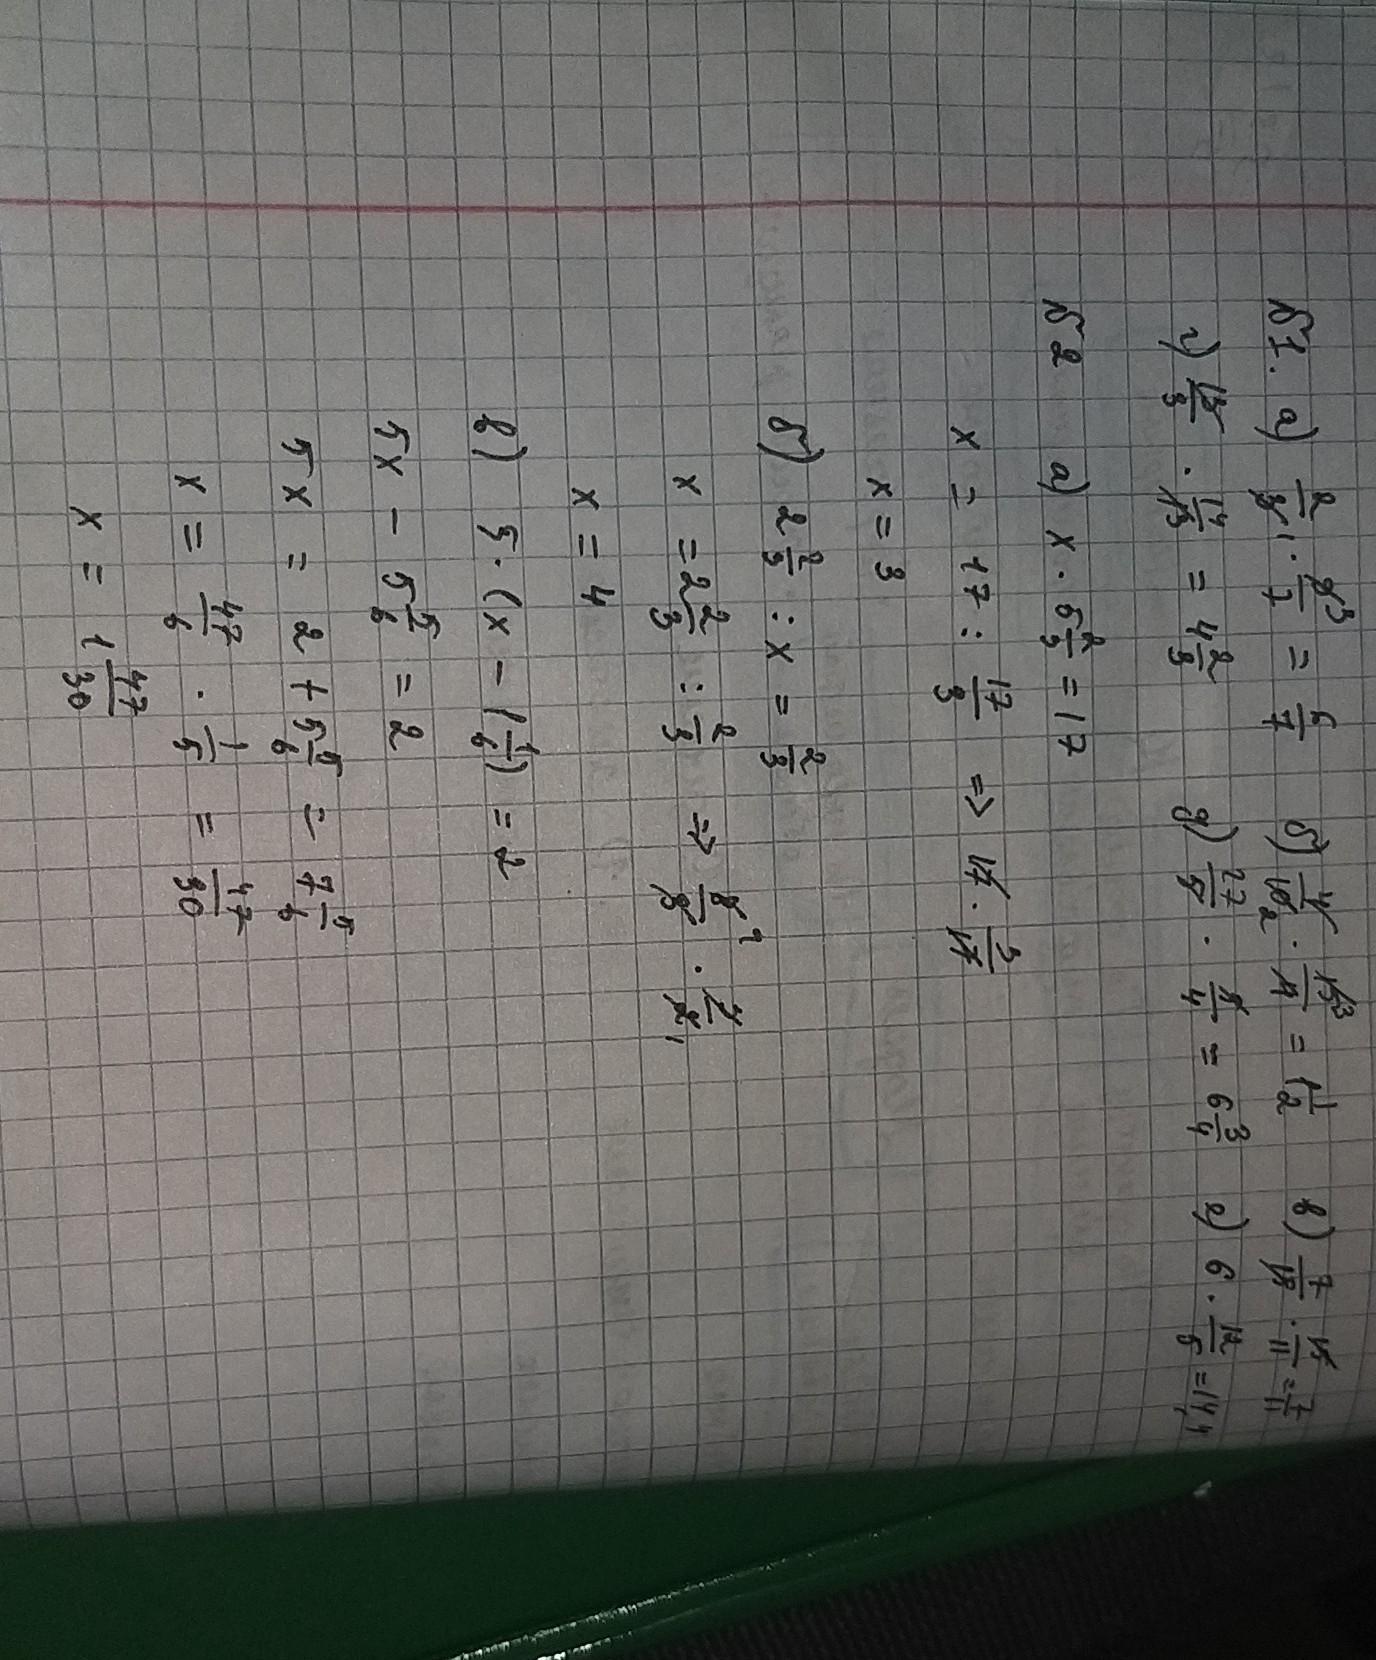 №1. а) 2/3 1 · 9 3/7 = 6/7 б) 4/10 2 · 15 3/4 = 1 1/2 в) 7/15 · 15/11 = 7/11
г) 14/3 · 13/13 = 4 2/3 д) 27/5 · 5/4 = 6 3/4 е) 6 · 12/5 = 14,4
№2 а) x · 5 2/3 = 17
x = 17 : 17/3 => 17 · 3/17
x = 3
б) 2 2/3 : x = 2/3
x = 2 2/3 : 2/3 => 8/3 · 3/2 1
x = 4
в) 5 · (x - 1 1/6) = 2
5x - 5 5/6 = 2
5x = 2 + 5 5/6 = 7 5/6
x = 47/6 · 1/5 = 47/30
x = 1 47/30